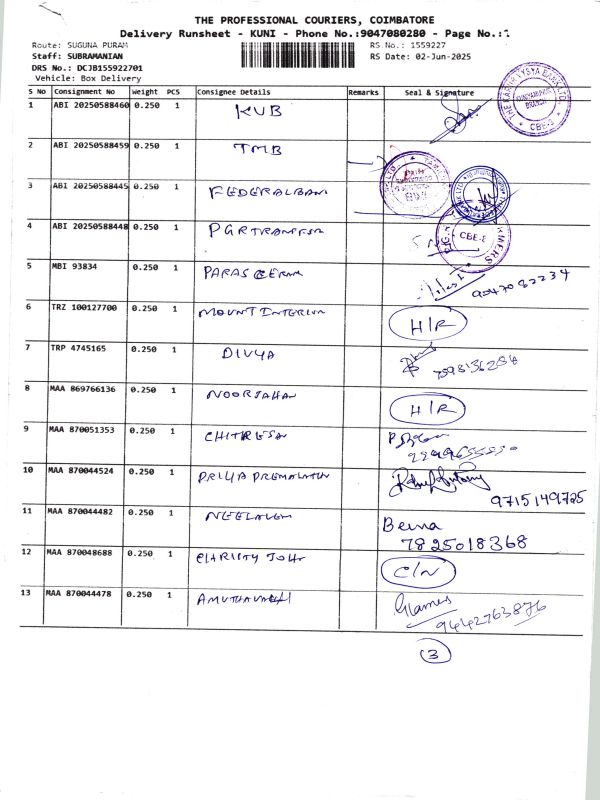 THE PROFESSIONAL COURIERS, COIMBATORE
Delivery Runsheet - KUNI - Phone No.:9047080280 - Page No.:
Route: SUGUNA PURAM
RS No.: 1559227
Staff: SUBRAMANIAN
RS Date: 02-Jun-2025
DRS No.: DCJB155922701
Vehicle: Box Delivery
S No Consignment No Weight PCS Consignee Details Remarks Seal & Signature
1 ABI 20250588460 0.250 1 KVB
THE KARUR VYSYA BANK LTD
BRANCH
CBE-8
2 ABI 20250588459 0.250 1 TMB
3 ABI 20250588445 0.250 1 FEDERALBAN
4 ABI 20250588448 0.250 1 PGRTRANFSR
CBE-8
5 MBI 93834 0.250 1 PARAS CERAM
9047082234
6 TRZ 100127700 0.250 1 MOUNT INTERIUR
H/R
7 TRP 4745165 0.250 1 DIVYA
8 MAA 869766136 0.250 1 NOORJAHAN
H/R
9 MAA 870051353 0.250 1 CHITRESAN
10 MAA 870044524 0.250 1 PRIYA PREMALATHA
9715149725
11 MAA 870044482 0.250 1
Beena
7825018368
12 MAA 870048688 0.250 1 CHRISTY JOHN
C/N
13 MAA 870044478 0.250 1 AMUTHAVALLI
9442763876
3